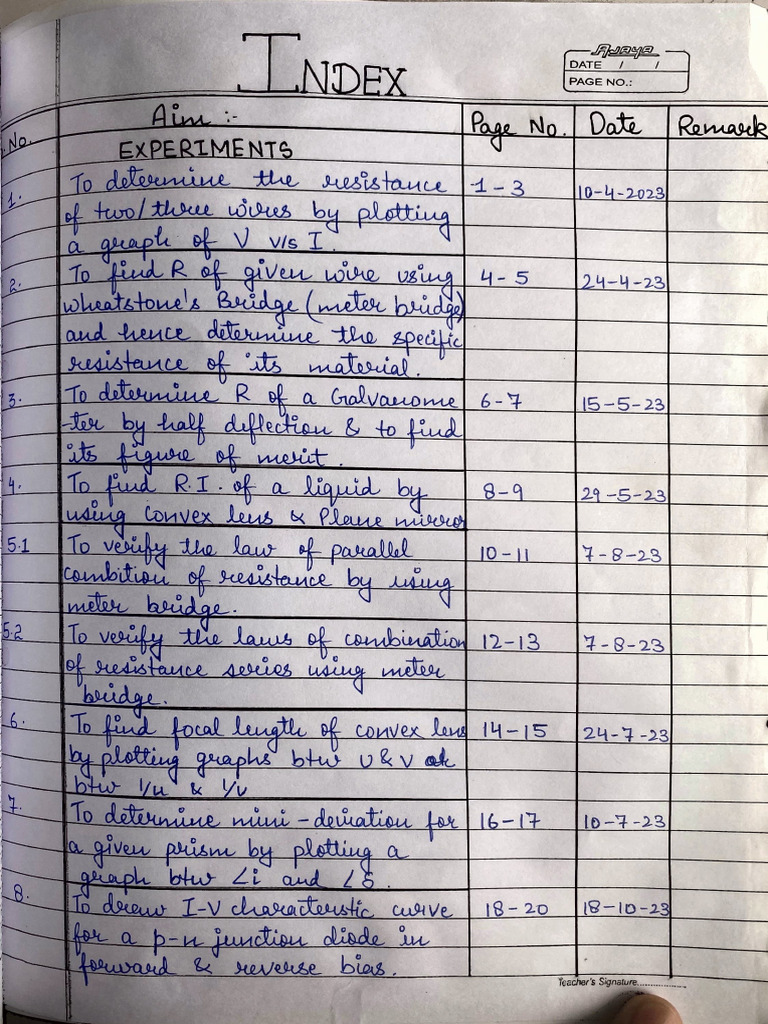 INDEX
AJAYA
DATE / /
PAGE NO.:
S.No. Aim :- Page No. Date Remark
EXPERIMENTS
1. To determine the resistance 1-3 10-4-2023
of two/three wires by plotting
a graph of V v/s I.
2. To find R of given wire using 4-5 24-4-23
wheatstone's Bridge (meter bridge)
and hence determine the specific
resistance of its material.
3. To determine R of a Galvanome 6-7 15-5-23
-ter by half deflection & to find
its figure of merit.
4. To find R.I. of a liquid by 8-9 29-5-23
using convex lens & Plane mirror
5.1 To verify the law of parallel 10-11 7-8-23
combition of resistance by using
meter bridge.
5.2 To verify the laws of combination 12-13 7-8-23
of resistance series using meter
bridge.
6. To find focal length of convex lens 14-15 24-7-23
by plotting graphs btw U & V or
btw 1/u & 1/v
7. To determine mini-deviation for 16-17 10-7-23
a given prism by plotting a
graph btw ∠i and ∠δ.
8. To draw I-V characterstic curve 18-20 18-10-23
for a p-n junction diode in
forward & reverse bias.
Teacher's Signature..............